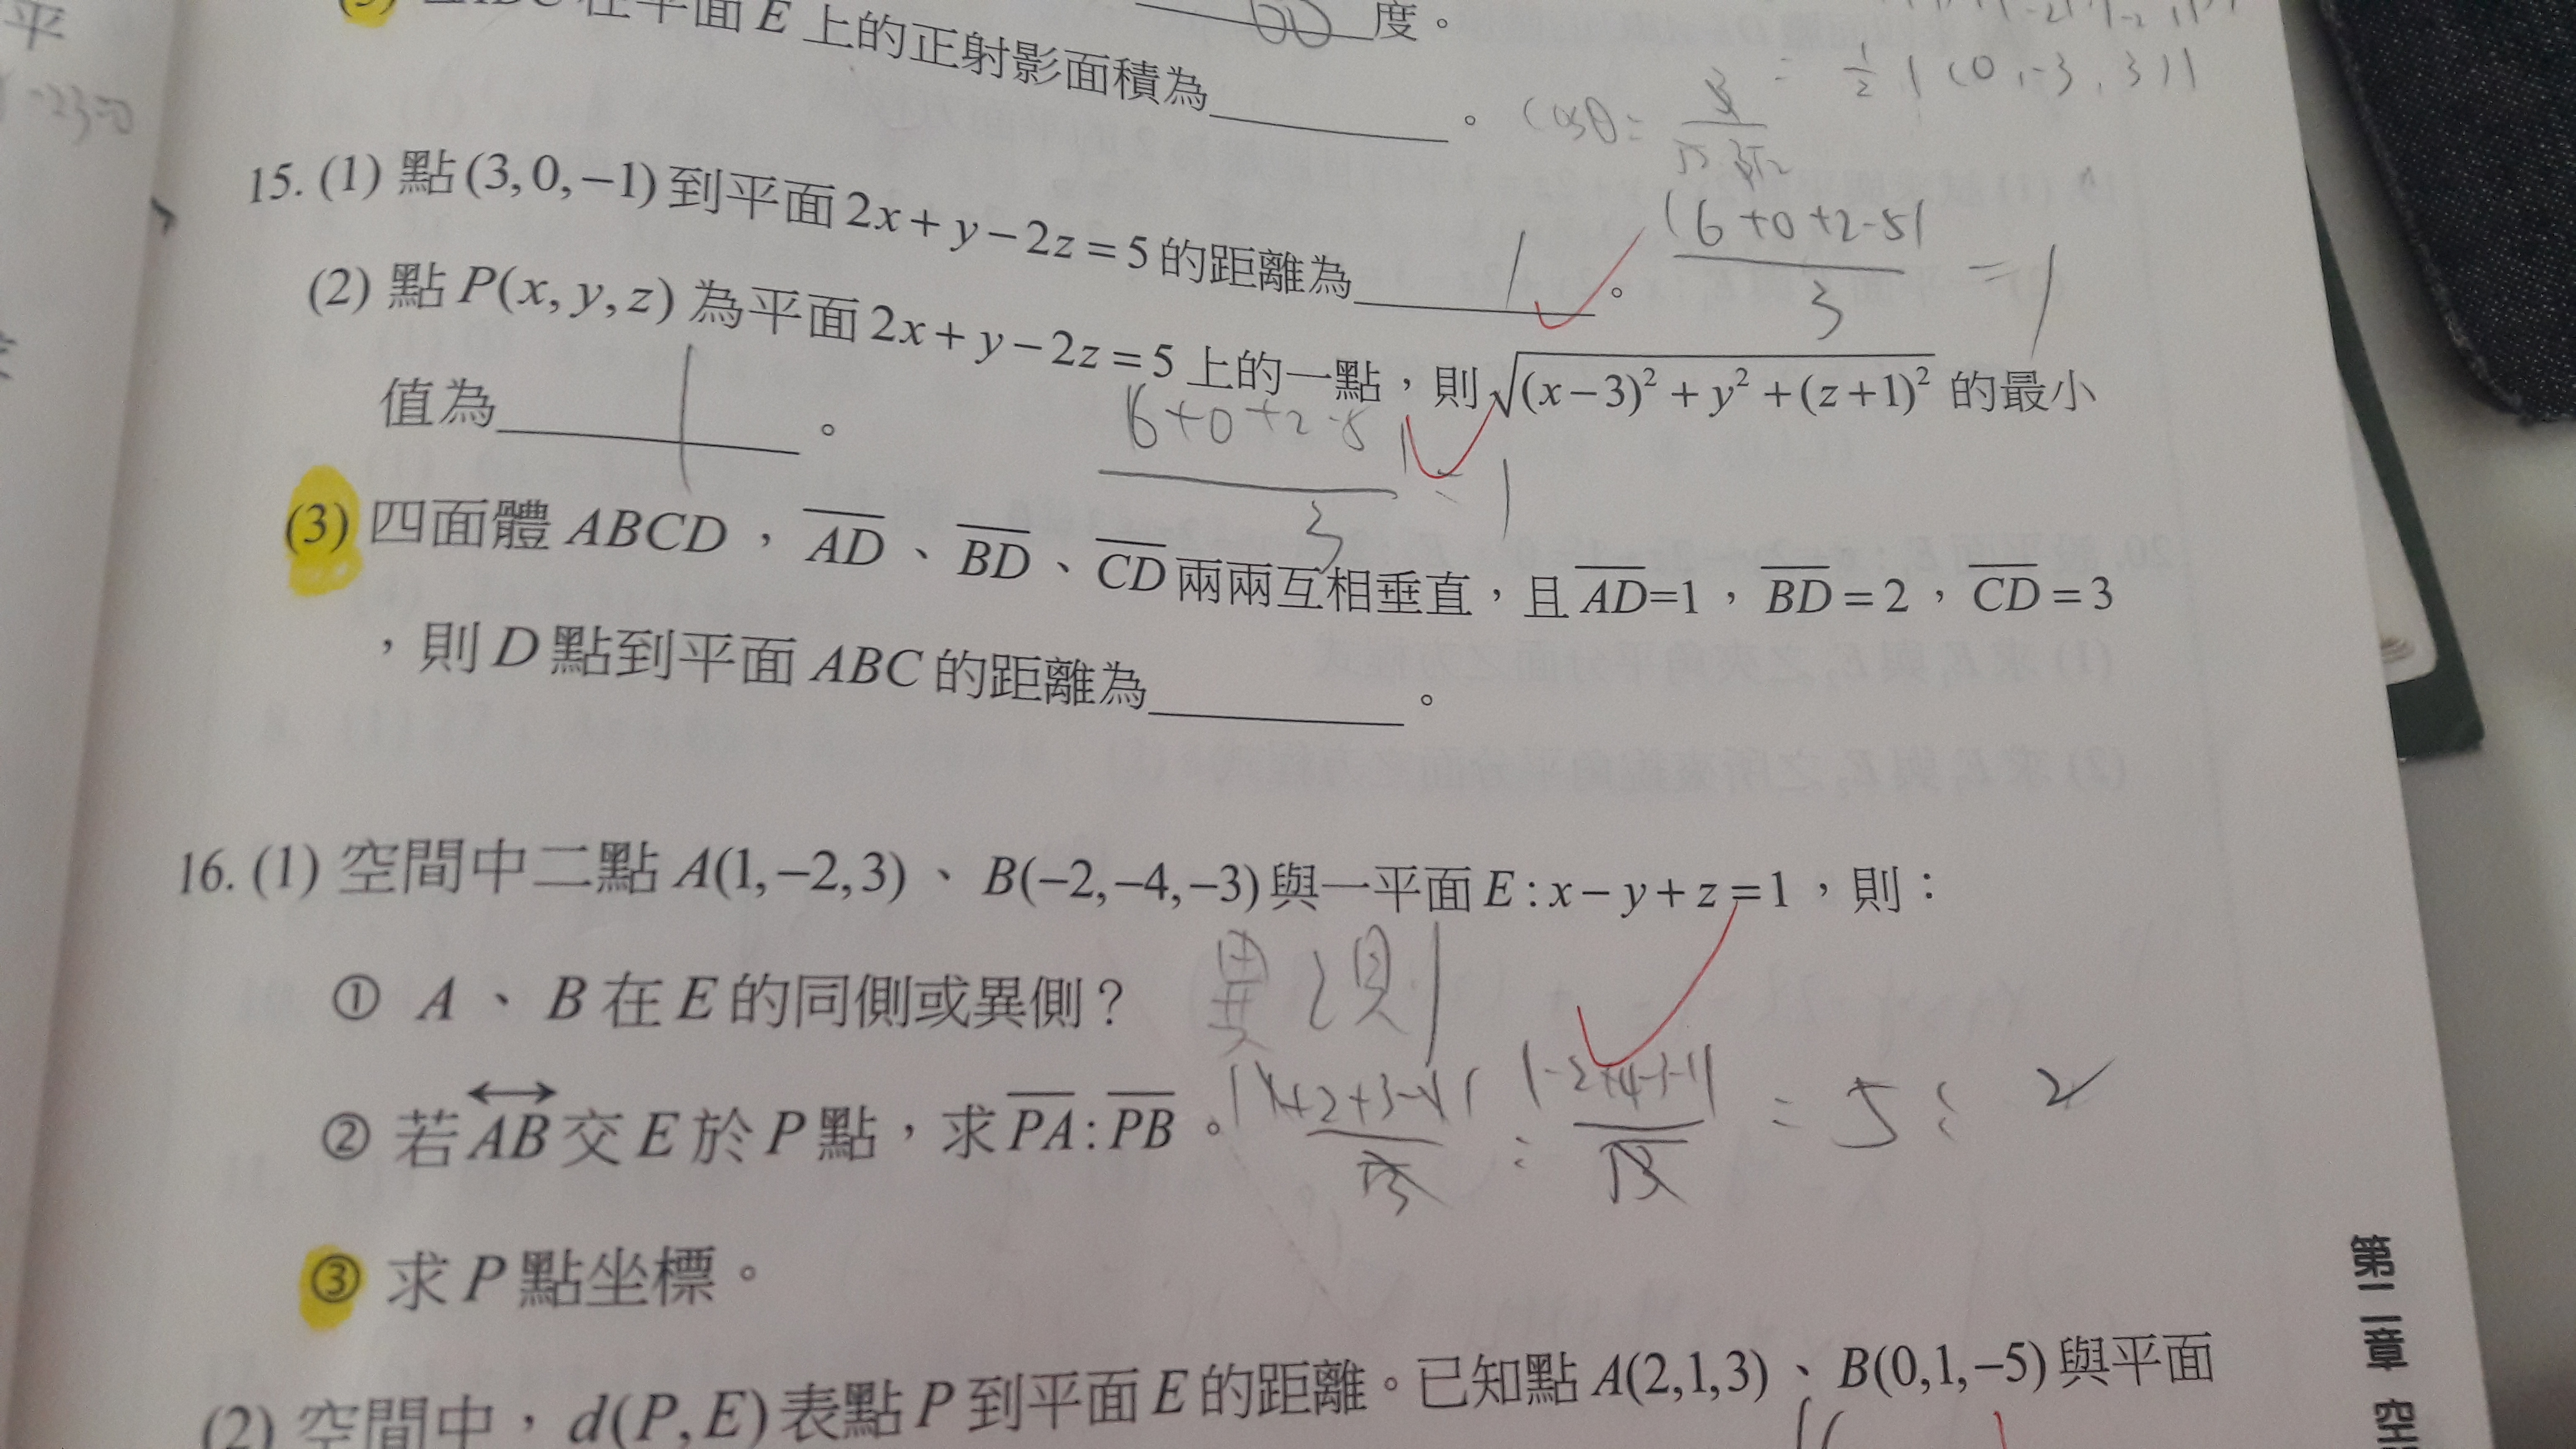 平
-23=0
(3) △ABC 在平面 E 上的正射影面積為______。
60 度。
= 1/2 |(0, -3, 3)|
cosθ = 3/(√2·3√2)
15. (1) 點 (3, 0, −1) 到平面 2x + y − 2z = 5 的距離為 1 。
|6+0+2-5|/3 = 1
(2) 點 P(x, y, z) 為平面 2x + y − 2z = 5 上的一點，則 √((x−3)² + y² + (z+1)²) 的最小
值為 1 。
|6+0+2-5|/3 = 1
(3) 四面體 ABCD，AD、BD、CD 兩兩互相垂直，且 AD=1，BD = 2，CD = 3
，則 D 點到平面 ABC 的距離為______。
16. (1) 空間中二點 A(1, −2, 3)、B(−2, −4, −3) 與一平面 E : x − y + z = 1，則：
① A、B 在 E 的同側或異側？ 異側
② 若 AB 交 E 於 P 點，求 PA : PB。 |1+2+3-1|/√3 : |-2+4-3-1|/√3 = 5 : 2
③ 求 P 點坐標。
(2) 空間中，d(P, E) 表點 P 到平面 E 的距離。已知點 A(2, 1, 3)、B(0, 1, −5) 與平面
第二章 空